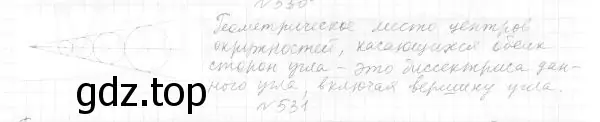 № 530
Геометрическое место центров
окружностей, касающихся обеих
сторон угла – это биссектриса дан-
ного угла, включая вершину угла.
gdz.top
№ 531